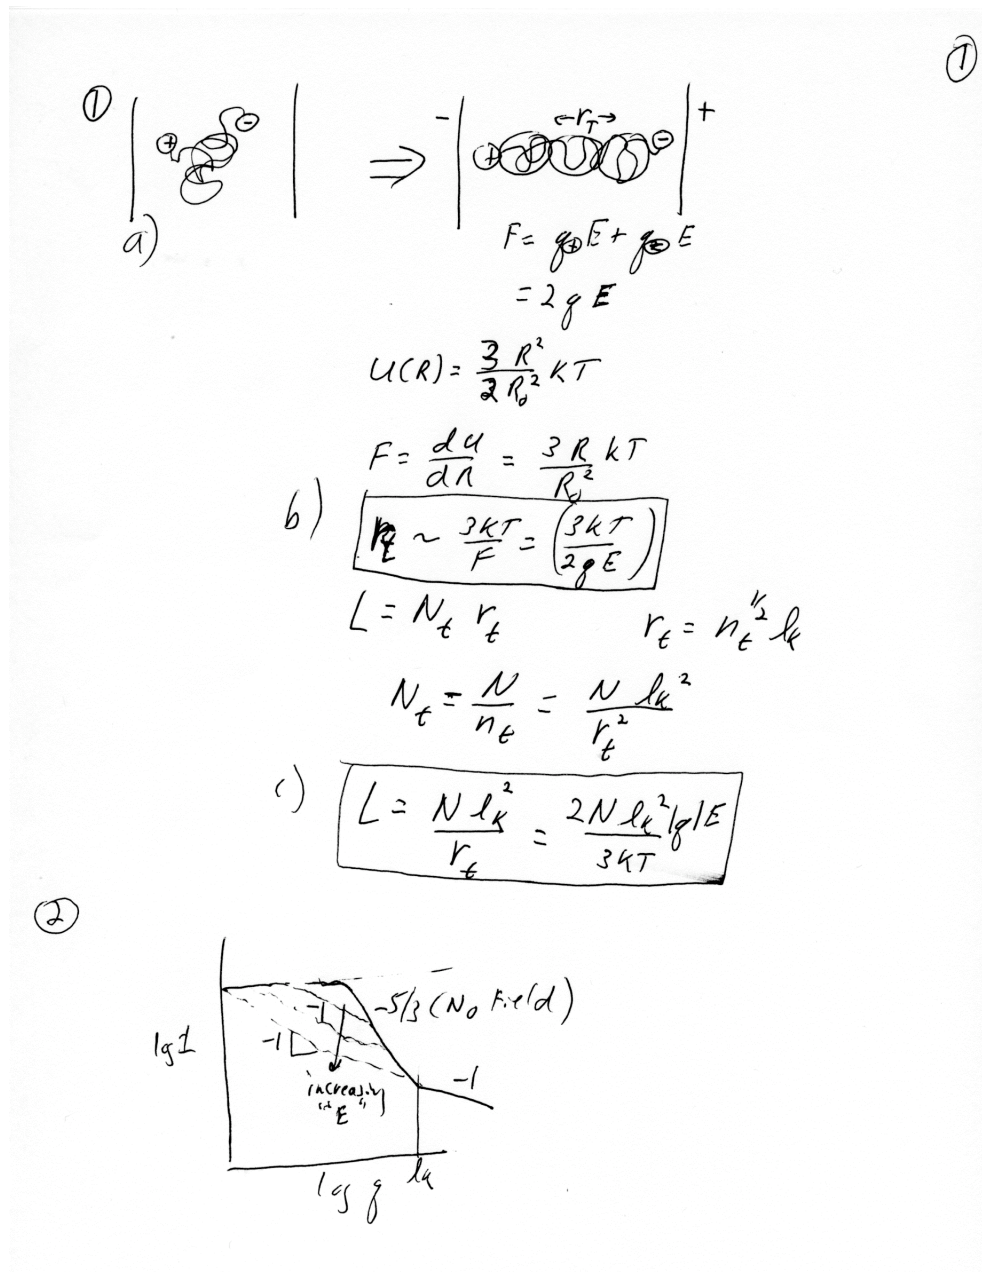 ①
①
+ -
⇒
- ←r_T→ +
+ -
a)
F = q⊕ E + q⊖ E
= 2 q E
U(R) = 3 R² / 2 R₀² KT
F = dU/dR = 3 R kT / R₀²
b) r_t ~ 3KT/F = (3KT / 2qE)
L = N_t r_t    r_t = n_t^{1/2} l_k
N_t = N/n_t = N l_k² / r_t²
c) L = N l_K² / r_t = 2N l_k² |q| E / 3KT
②
-5/3 (No Field)
-1
lg I
-1
-1
increasing
"E"
log q
l_k